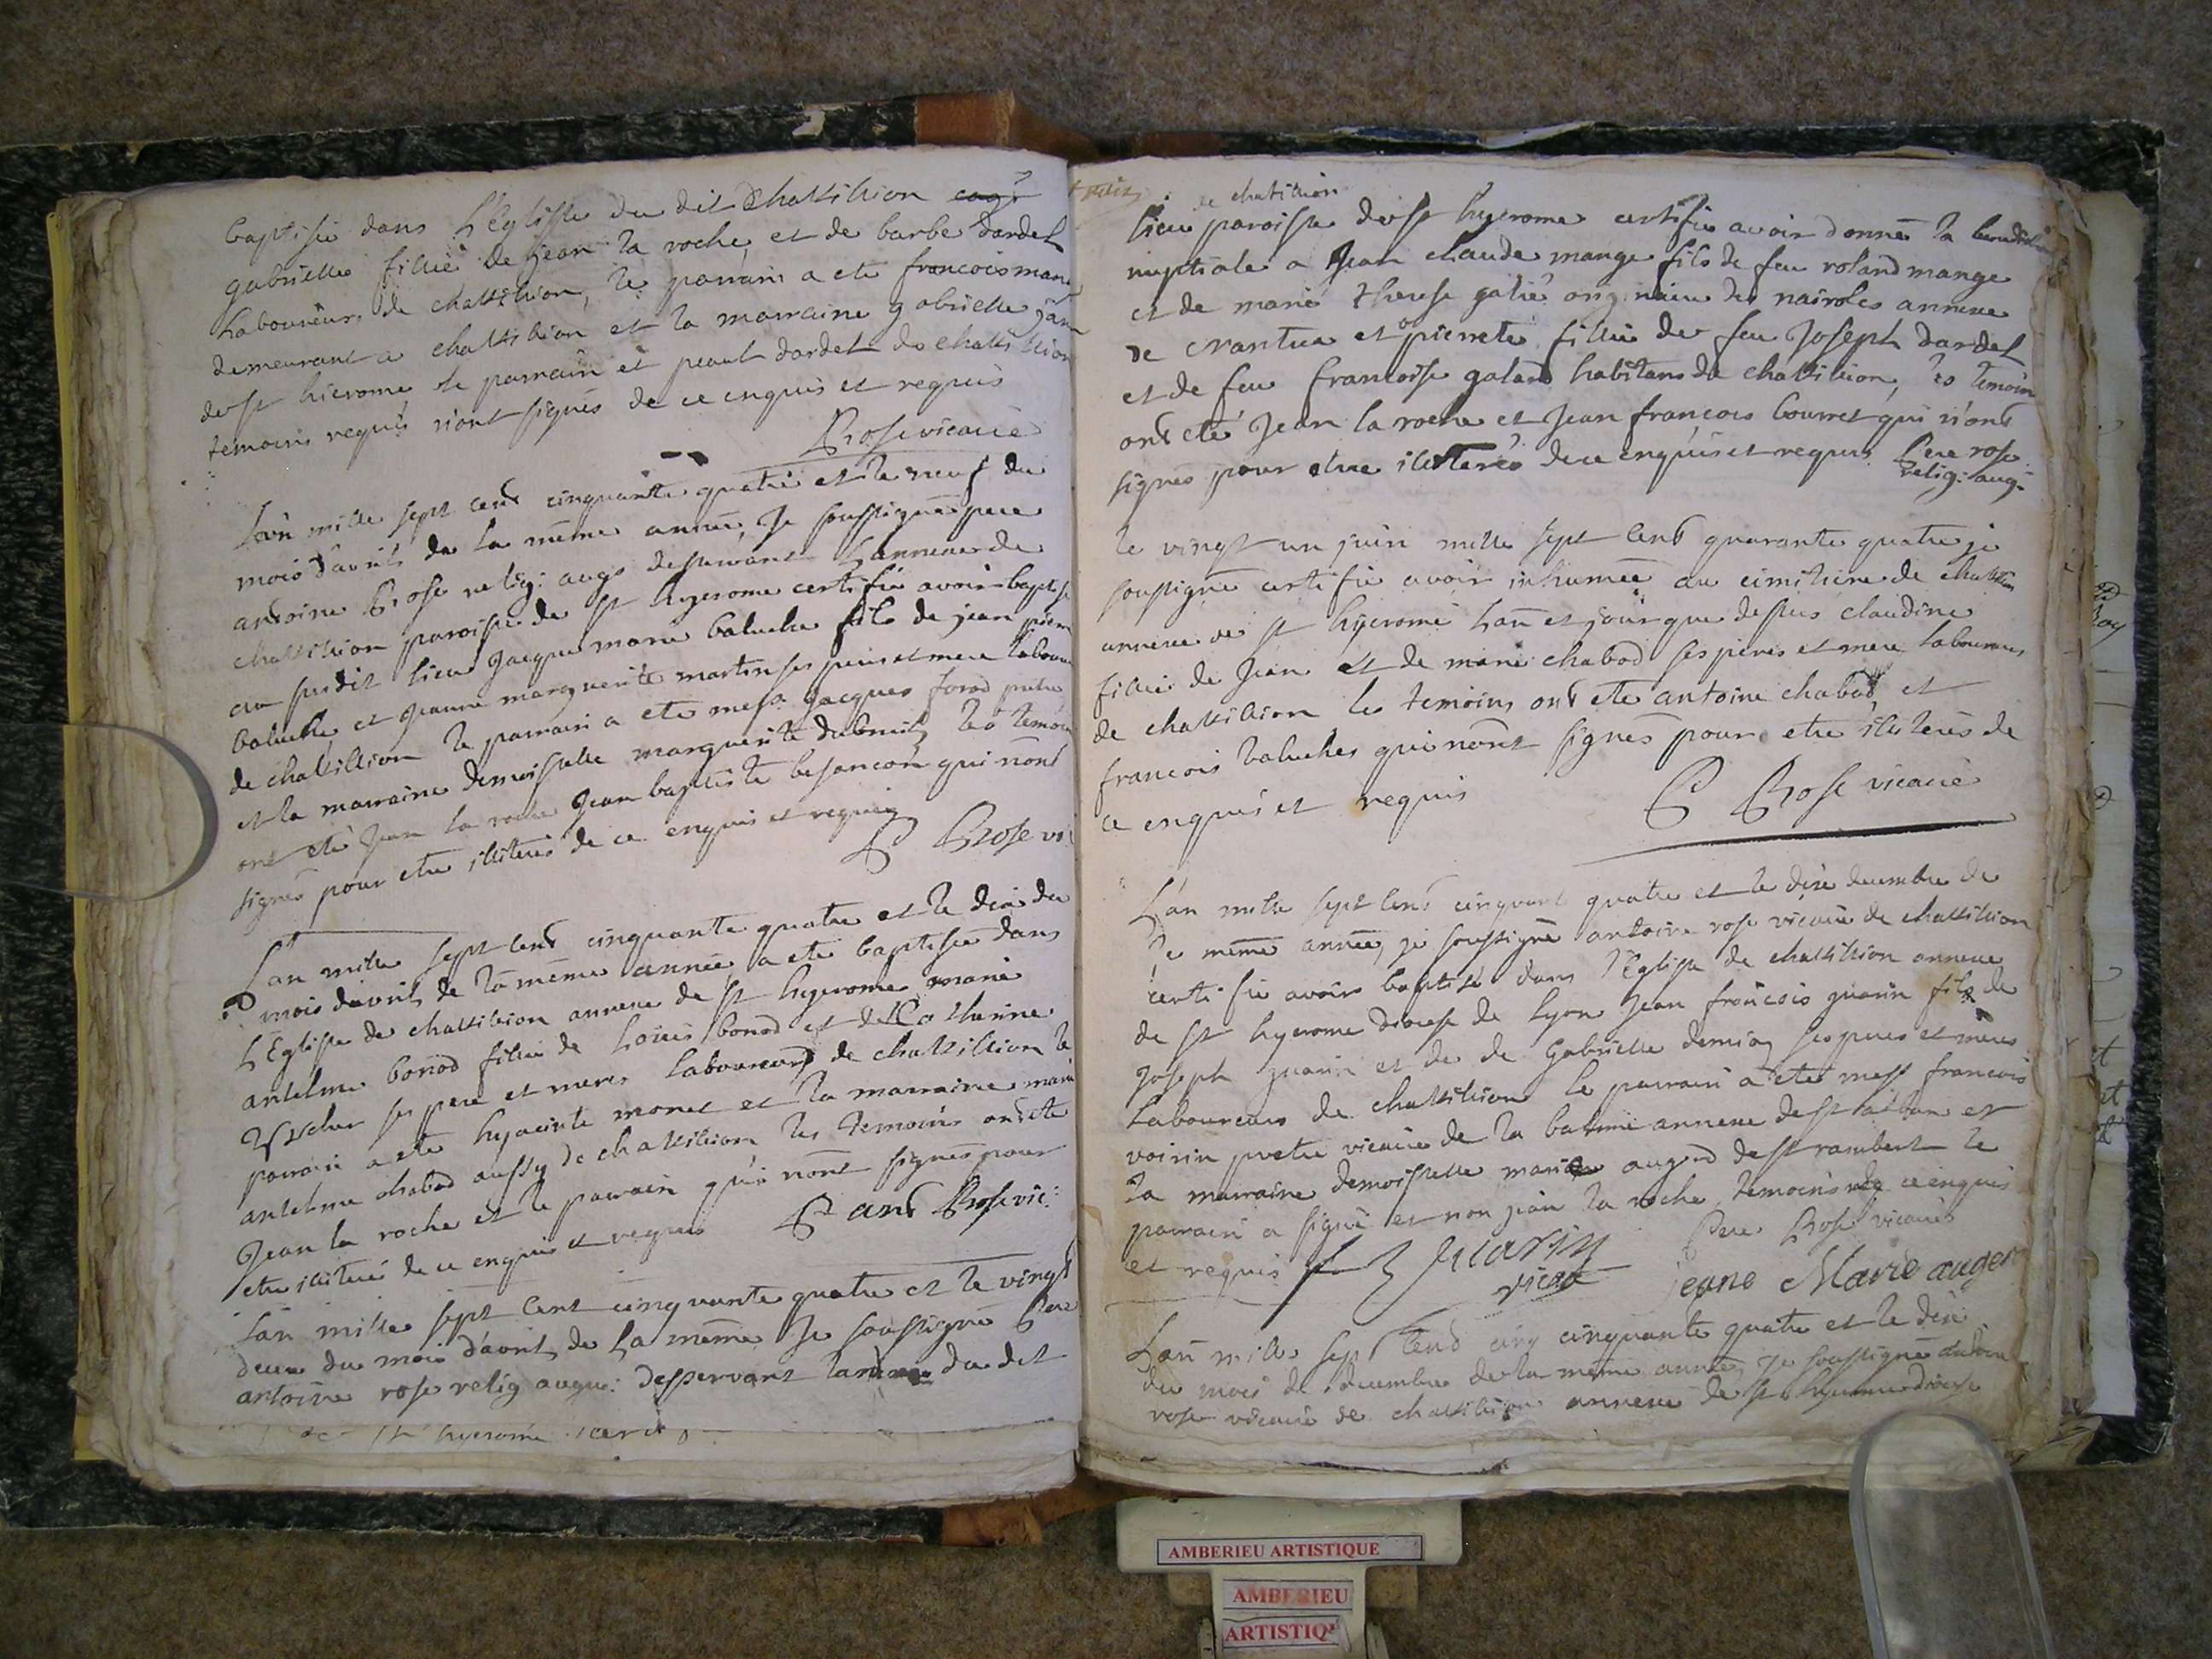 baptisée dans L'Eglisse du dit Chattillion
gabrielle fillie de jean la roche et de barbe dardel
Laboureurs de chattillion, le parrain a ete francois
demeurant a chattillion et la marraine gabrielle
de st hierome le parrain et dardel de chattillion
temoins requis n'ont signés de ce enquis et requis
Rose vicaire
L'an mille sept cent cinquante quatre et le neuf du
mois d'avril de la même année, Je soussigné pere
antoine Rose relig: augs desservant L'annexe de
chattillion paroisse de st hyerome certifie avoir baptisé
au susdit lieu Jacque marie baluche fils de jean pierre
baluche et jeanne marguerite martin ses peres et mere labour
de chattillion le parrain a ete mess. jacques prêtre
et la marraine demoiselle marguerite les temoins
ont eté Jean la roche Jean baptiste besançon qui nont
signés pour etre illiteres de ce enquis et requis
P Rose vi
L'an mille sept cent cinquante quatre et le dix du
mois davril de la même année a ete baptisée dans
L'Eglisse de chattillion annexe de st hyerome marie
antelme bonod fillie de Louis bonod et de Catherine
ses pere et meres Laboureurs de chattillion le
parrain a ete hyacinte monet et la marraine marie
antelme chabod aussy de chattillion les temoins ont ete
Jean la roche et le parrain qui nont signés pour
etre illiterés de ce enquis et requis P ant Rose vic:
L'an mille sept cent cinquante quatre et le vingt
deux du mois d'avril de la même Je soussigné Pere
antoine rose relig augu: desservant du dit
de st hyerome
de chatillion
lieu paroisse de st hyerome certifie avoir donné la benediction
nuptiale a Jean claude mange fils de feu roland mange
et de marie therese galié originaire de nairoles annexe
de et pierrete fillie de feu Joseph dardel
et de feu francoise galand habitans de chattillion, les temoins
ont eté Jean la roche et Jean françois bourret qui n'ont
signés pour etre illiterés de ce enquis et requis Pere rose
relig: aug.
le vingt un juin mille sept cent quarante quatre je
soussigné certifie avoir inhumée au cimitiere de chattillion
annexe de st hyerome L'an et jour que dessus claudine
fillie de Jean et de marie chabod ses peres et mere laboureurs
de chattillion les temoins ont ete antoine chabod et
francois baluches qui nont signés pour etre illiterés de
ce enquis et requis P Rose vicaire
L'an mille sept cent cinquant quatre et le dixe decembre de
le meme année, je soussigné antoine rose vicaire de chattillion
certifie avoir baptisé dans l'Eglisse de chattillion annexe
de st hyerome diocese de Lyon Jean françois guarin fils de
Joseph guarin et de de Gabrielle ses peres et meres
Laboureurs de chattillion le parrain a ete mess francois
voirin pretre vicaire de la balme annexe de st alban et
la marraine demoiselle marie auged de st rambert le
parrain a signé et non jean la roche temoins de ce enquis
et requis Pere Rose vicaire
vicre jeane Marie auger
L'an mille sept cent cinq cinquante quatre et le dixe
du mois de decembre de la meme année, Je soussigné antoine
rose vicaire de chattillion annexe de st hyerome diocese
AMBERIEU ARTISTIQUE
AMBERIEU
ARTISTIQ